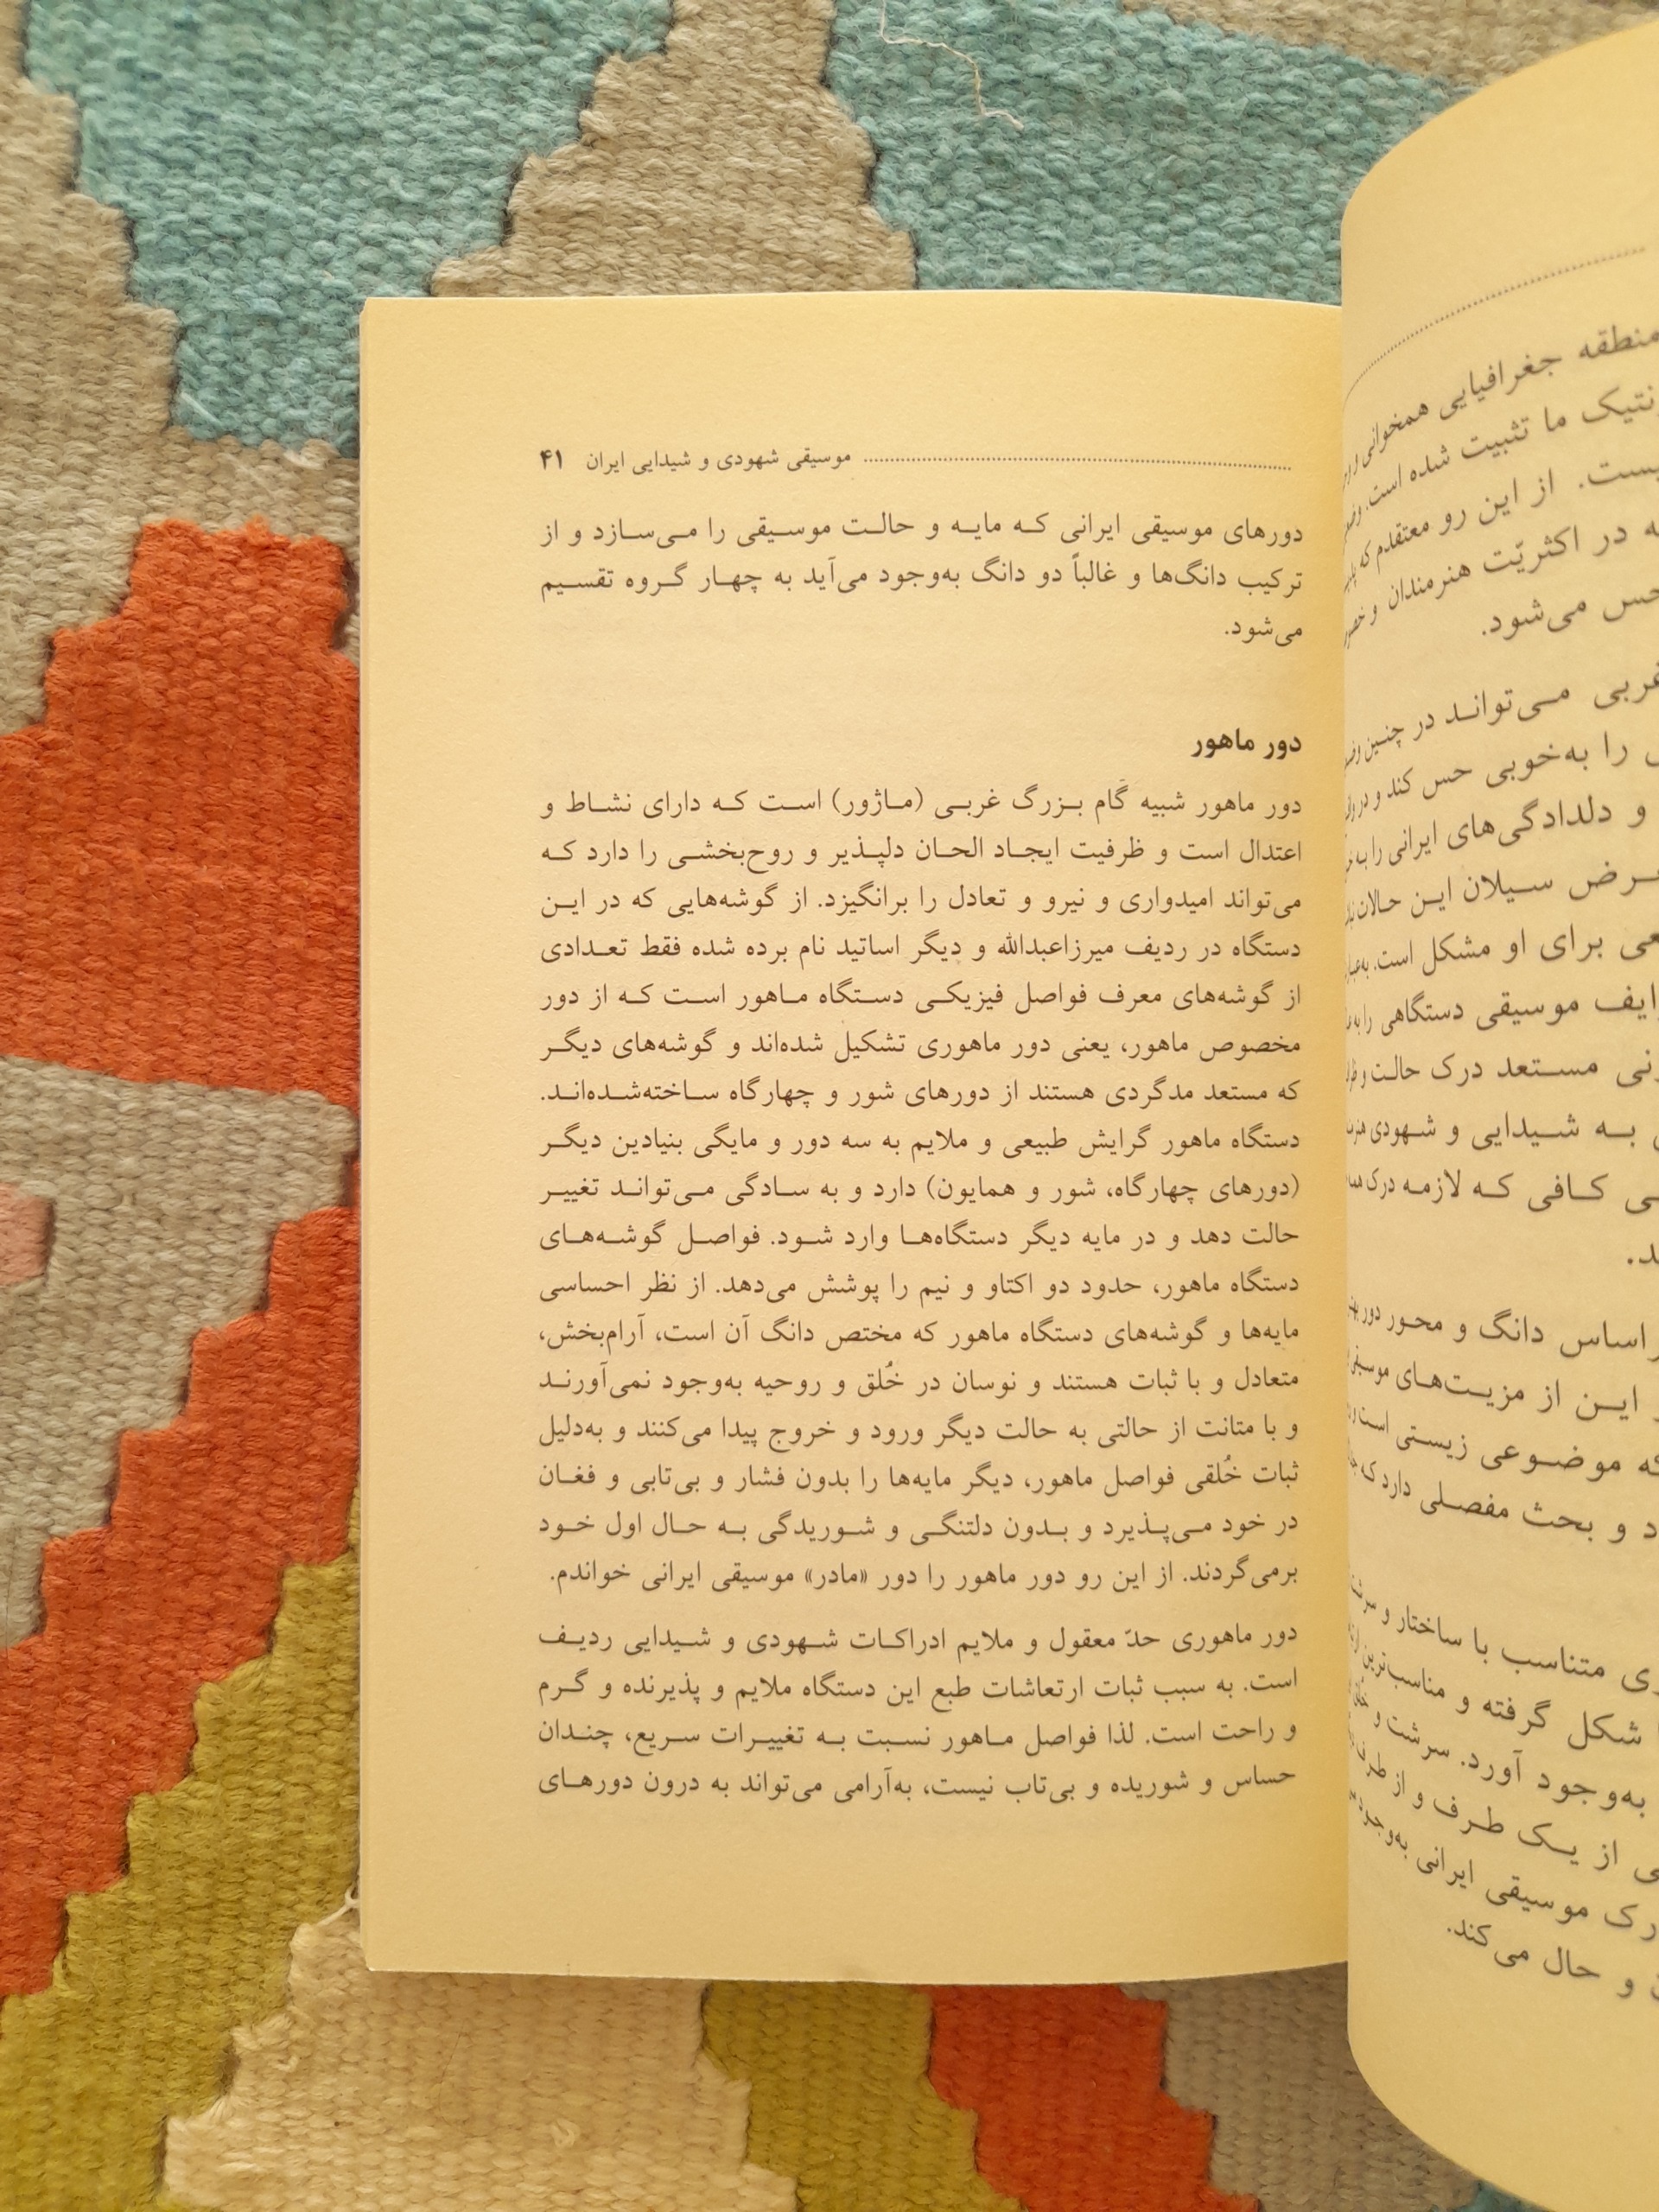 موسیقی شهودی و شیدایی ایران ۴۱
دورهای موسیقی ایرانی که مایه و حالت موسیقی را می‌سازد و از
ترکیب دانگ‌ها و غالباً دو دانگ به‌وجود می‌آید به چهار گروه تقسیم
می‌شود.
دور ماهور
دور ماهور شبیه گام بزرگ غربی (ماژور) است که دارای نشاط و
اعتدال است و ظرفیت ایجاد الحان دلپذیر و روح‌بخشی را دارد که
می‌تواند امیدواری و نیرو و تعادل را برانگیزد. از گوشه‌هایی که در این
دستگاه در ردیف میرزاعبدالله و دیگر اساتید نام برده شده فقط تعدادی
از گوشه‌های معرف فواصل فیزیکی دستگاه ماهور است که از دور
مخصوص ماهور، یعنی دور ماهوری تشکیل شده‌اند و گوشه‌های دیگر
که مستعد مدگردی هستند از دورهای شور و چهارگاه ساخته‌شده‌اند.
دستگاه ماهور گرایش طبیعی و ملایم به سه دور و مایگی بنیادین دیگر
(دورهای چهارگاه، شور و همایون) دارد و به سادگی می‌تواند تغییر
حالت دهد و در مایه دیگر دستگاه‌ها وارد شود. فواصل گوشه‌های
دستگاه ماهور، حدود دو اکتاو و نیم را پوشش می‌دهد. از نظر احساسی
مایه‌ها و گوشه‌های دستگاه ماهور که مختص دانگ آن است، آرام‌بخش،
متعادل و با ثبات هستند و نوسان در خُلق و روحیه به‌وجود نمی‌آورند
و با متانت از حالتی به حالت دیگر ورود و خروج پیدا می‌کنند و به‌دلیل
ثبات خُلقی فواصل ماهور، دیگر مایه‌ها را بدون فشار و بی‌تابی و فغان
در خود می‌پذیرد و بدون دلتنگی و شوریدگی به حال اول خود
برمی‌گردند. از این رو دور ماهور را دور «مادر» موسیقی ایرانی خواندم.
دور ماهوری حدّ معقول و ملایم ادراکات شهودی و شیدایی ردیف
است. به سبب ثبات ارتعاشات طبع این دستگاه ملایم و پذیرنده و گرم
و راحت است. لذا فواصل ماهور نسبت به تغییرات سریع، چندان
حساس و شوریده و بی‌تاب نیست، به‌آرامی می‌تواند به درون دورهای
منطقه جغرافیایی همخوانی
ما تثبیت شده است.
از این رو معتقدم که
در اکثریّت هنرمندان و
حس می‌شود.
می‌تواند در چنین
را به‌خوبی حس کند و در
و دلدادگی‌های ایرانی را به
سیلان این حالات
برای او مشکل است.
موسیقی دستگاهی را به
مستعد درک حالت و
به شیدایی و شهودی
کافی که لازمه درک
اساس دانگ و محور دور
این از مزیت‌های موسیقی
که موضوعی زیستی است و
و بحث مفصلی دارد که
متناسب با ساختار و
شکل گرفته و مناسب‌ترین
به‌وجود آورد. سرشت و
از یک طرف و از طرف
موسیقی ایرانی به‌وجود
و حال می‌کند.